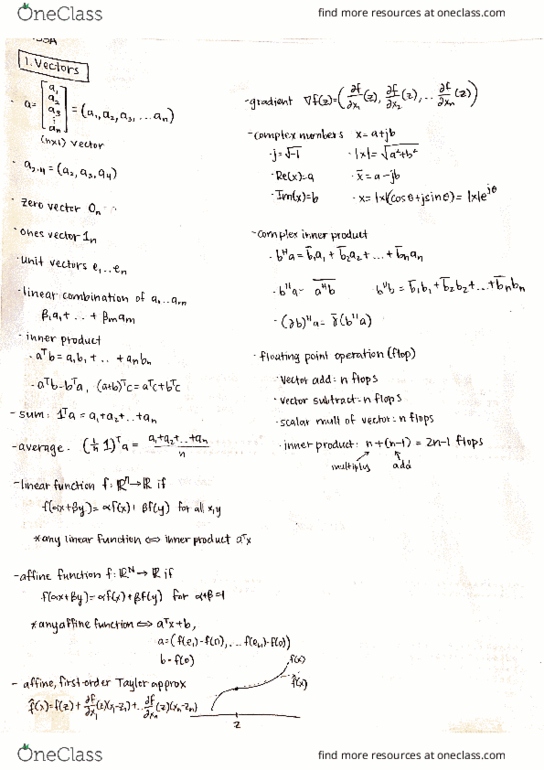 OneClass
find more resources at oneclass.com
1. Vectors
· a = [a₁ a₂ a₃ ⋮ aₙ] = (a₁, a₂, a₃, ... aₙ)
(n×1) vector
· a₂:₄ = (a₂, a₃, a₄)
· zero vector 0ₙ
· ones vector 1ₙ
· unit vectors e₁..eₙ
· linear combination of a₁..aₘ
β₁a₁ + .. + βₘaₘ
· inner product
· aᵀb = a₁b₁ + .. + aₙbₙ
· aᵀb = bᵀa, (a+b)ᵀc = aᵀc + bᵀc
- sum: 1ᵀa = a₁+a₂+..+aₙ
- average. (1/n 1)ᵀa = (a₁+a₂+..+aₙ)/n
- linear function f: ℝⁿ→ℝ if
f(αx+βy) = αf(x) + βf(y) for all x,y
* any linear function ⇔ inner product aᵀx
- affine function f: ℝᴺ→ℝ if
f(αx+βy) = αf(x)+βf(y) for α+β=1
* any affine function ⇔ aᵀx+b,
a = (f(e₁)-f(0), ... f(eₙ)-f(0))
b = f(0)
- affine, first-order Taylor approx
f̂(x) = f(z) + ∂f/∂x₁(z)(x₁-z₁) + .. ∂f/∂xₙ(z)(xₙ-zₙ)
f(x)
f̂(x)
z
- gradient ∇f(z) = (∂f/∂x₁(z), ∂f/∂x₂(z), .. ∂f/∂xₙ(z))
- complex numbers x = a+jb
· j = √-1 · |x| = √(a²+b²)
· Re(x) = a · x̄ = a-jb
· Im(x) = b · x = |x|(cosθ+jsinθ) = |x|eʲᶿ
- complex inner product
· bᴴa = b̄₁a₁ + b̄₂a₂ + ... + b̄ₙaₙ
· bᴴa = \overline{aᴴb} bᴴb = b̄₁b₁ + b̄₂b₂ + ... + b̄ₙbₙ
· (γb)ᴴa = γ̄(bᴴa)
· floating point operation (flop)
· vector add: n flops
· vector subtract: n flops
· scalar mult of vector: n flops
· inner product: n+(n-1) = 2n-1 flops
multiplys add
OneClass
find more resources at oneclass.com